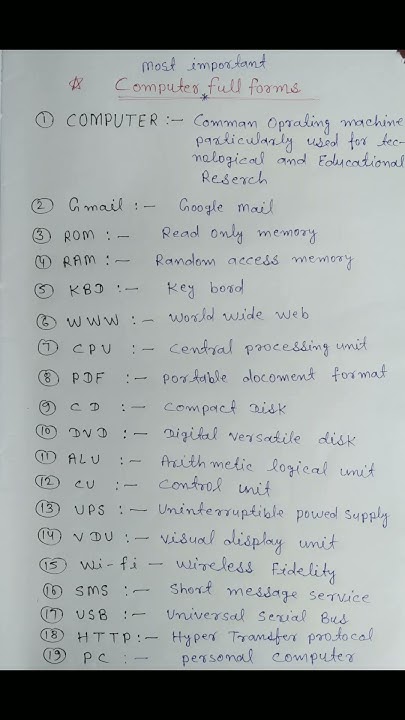 most important
Computer full forms
① COMPUTER :- Comman Oprating machine
particularly used for tec-
nological and Educational
Reserch
② Gmail :- Google mail
③ ROM :- Read only memory
④ RAM :- Random access memory
⑤ KBD :- Key bord
⑥ WWW :- World wide web
⑦ CPU :- Central processing unit
⑧ PDF :- portable docoment format
⑨ CD :- Compact Disk
⑩ DVD :- Digital versatile disk
⑪ ALU :- Arithmetic logical unit
⑫ CU :- Control unit
⑬ UPS :- Uninterruptible powed supply
⑭ VDU :- visual display unit
⑮ Wi-fi - Wireless Fidelity
⑯ SMS :- Short message service
⑰ USB :- Universal Serial Bus
⑱ HTTP :- Hyper Transfer protocol
⑲ PC :- personal computer